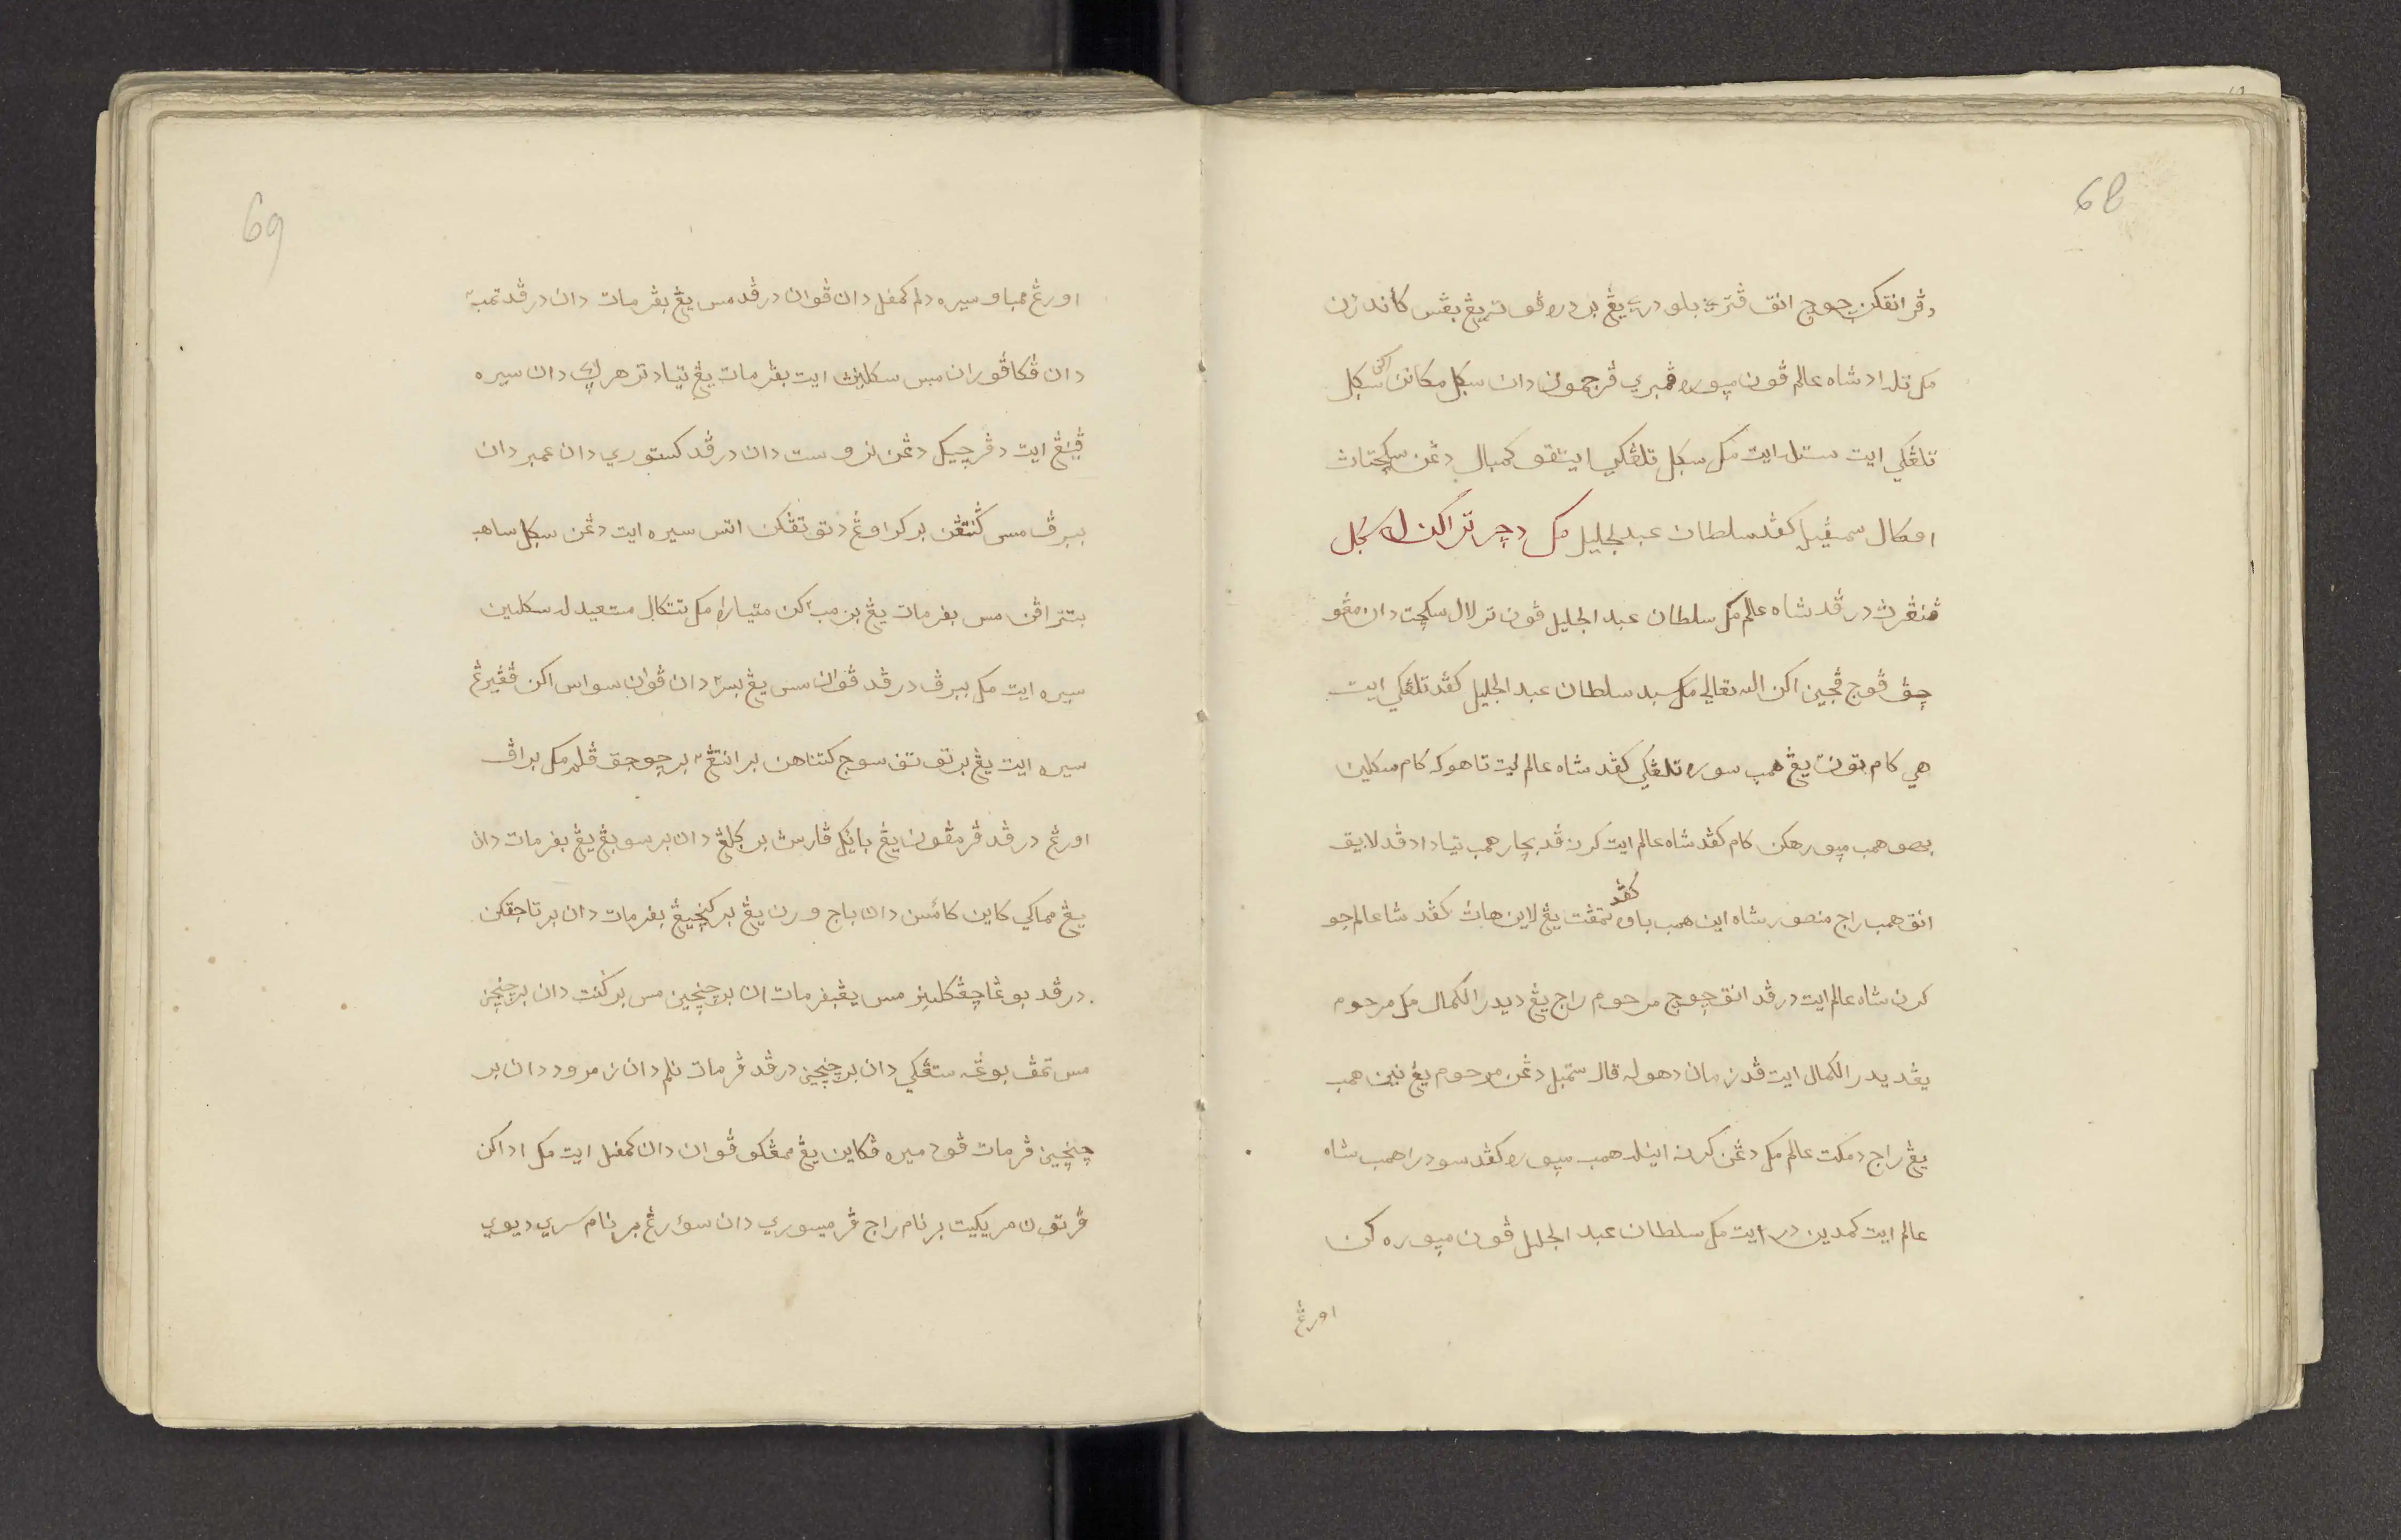 68
دڤرانقکن چوچ انق ڤتري٢ بلو دري٢ يڠ بر دره ڤوتر يڠ بڤس کاندڠن
مک تلداد شاه عالم ڤون مپوره ممبري ڤرجمون دان سکل مکانن اکن سکل
تلڠکي ايت ستله ايت مک سکل تلڠکي ايتڤو کمبال دڠن سکچتاث
اڤکال سمڤيله کڤد سلطان عبد الجليل مک دچرتراکنله سکل
ڤنڠرث درڤد شاه عالم مک سلطان عبد الجليل ڤون ترلال سکچت دان مڠو
چڤ ڤوج ڤجين اکن الله تعالي مک سبد سلطان عبد الجليل کڤد تلڠکي ايت
هي کام تون٢ يڠ همب سوره تلڠکي کڤد شاه عالم ايت تاهوکه کام سکلين
بهو همب مپورهکن کام کڤد شاه عالم ايت کرن ڤد بچار همب تياد اد ڤد لايق
انق همب راج منصور شاه اين همب باوه کڤد تمڤت يڠ لاين هاث کڤد شاه عالم جو
کرن شاه عالم ايت درڤد انق چوچ مرحوم راج يڠ ديدر الکمال مک مرحوم
يڠديدر الکمال ايت ڤد زمان دهوله قال ستمبل دڠن مرحوم يڠ نين همب
يڠ راج دمکت عالم مک دڠن کرن اينله همب مپوره کڤد سودرا همب شاه
عالم ايت کمدين در ايت مک سلطان عبد الجليل ڤون مپوره کن
اورڠ
69
اورڠ ممباو سيره دلم کمڤل دان ڤوان درڤد مس يڠ بڤرمات دان درڤد تمب٢
دان ڤکاڤوران مس سکلينث ايت بڤرمات يڠ تياد ترهرݢاي دان سيره
ڤينڠ ايت دڤرچيکل دڠن نروست دان درڤد کستوري دان عمبر دان
ببرڤ مس ݢنتڤن برکراوڠ دتوتڤکن اتس سيره ايت دڠن سکل ساهب
بتتراڤن مس بڤرمات يڠ برمب٢کن متيارا مک تتکال مستعيد له سکلين
سيره ايت مک ببرڤ درڤد ڤوان مس يڠ بسر٢ دان ڤوان سواس اکن ڤڠيرڠ
سيره ايت يڠ برتوتڤ سوج کتناهن برانتڠ٢ برچوچق ڤله مک براڤ
اورڠ درڤد ڤرمڤون يڠ بايک ڤارسث برݢلڠ دان برسوبڠ يڠ بڤرمات دان
يڠ مماکي کاين کائسن دان باج ورن يڠ برکنچيڠ بڤرمات دان برتاجقکن
درڤد بوڠا چڤک لينر مس يڠبڤرمات ان برچنچين مس برکنت دان برچنچين
مس تمڤ بوڠه ستڠکي دان برچنچين درڤد ڤرمات نلم دان زمرود دان بر
چنچين ڤرمات ڤود ميره ڤکاين يڠ ممڠکو ڤوان دان کمڤل ايت مک اداکن
ڤرتون مريکيت برنام راج ڤرميسوري دان سؤرڠ برنام سري ديوي